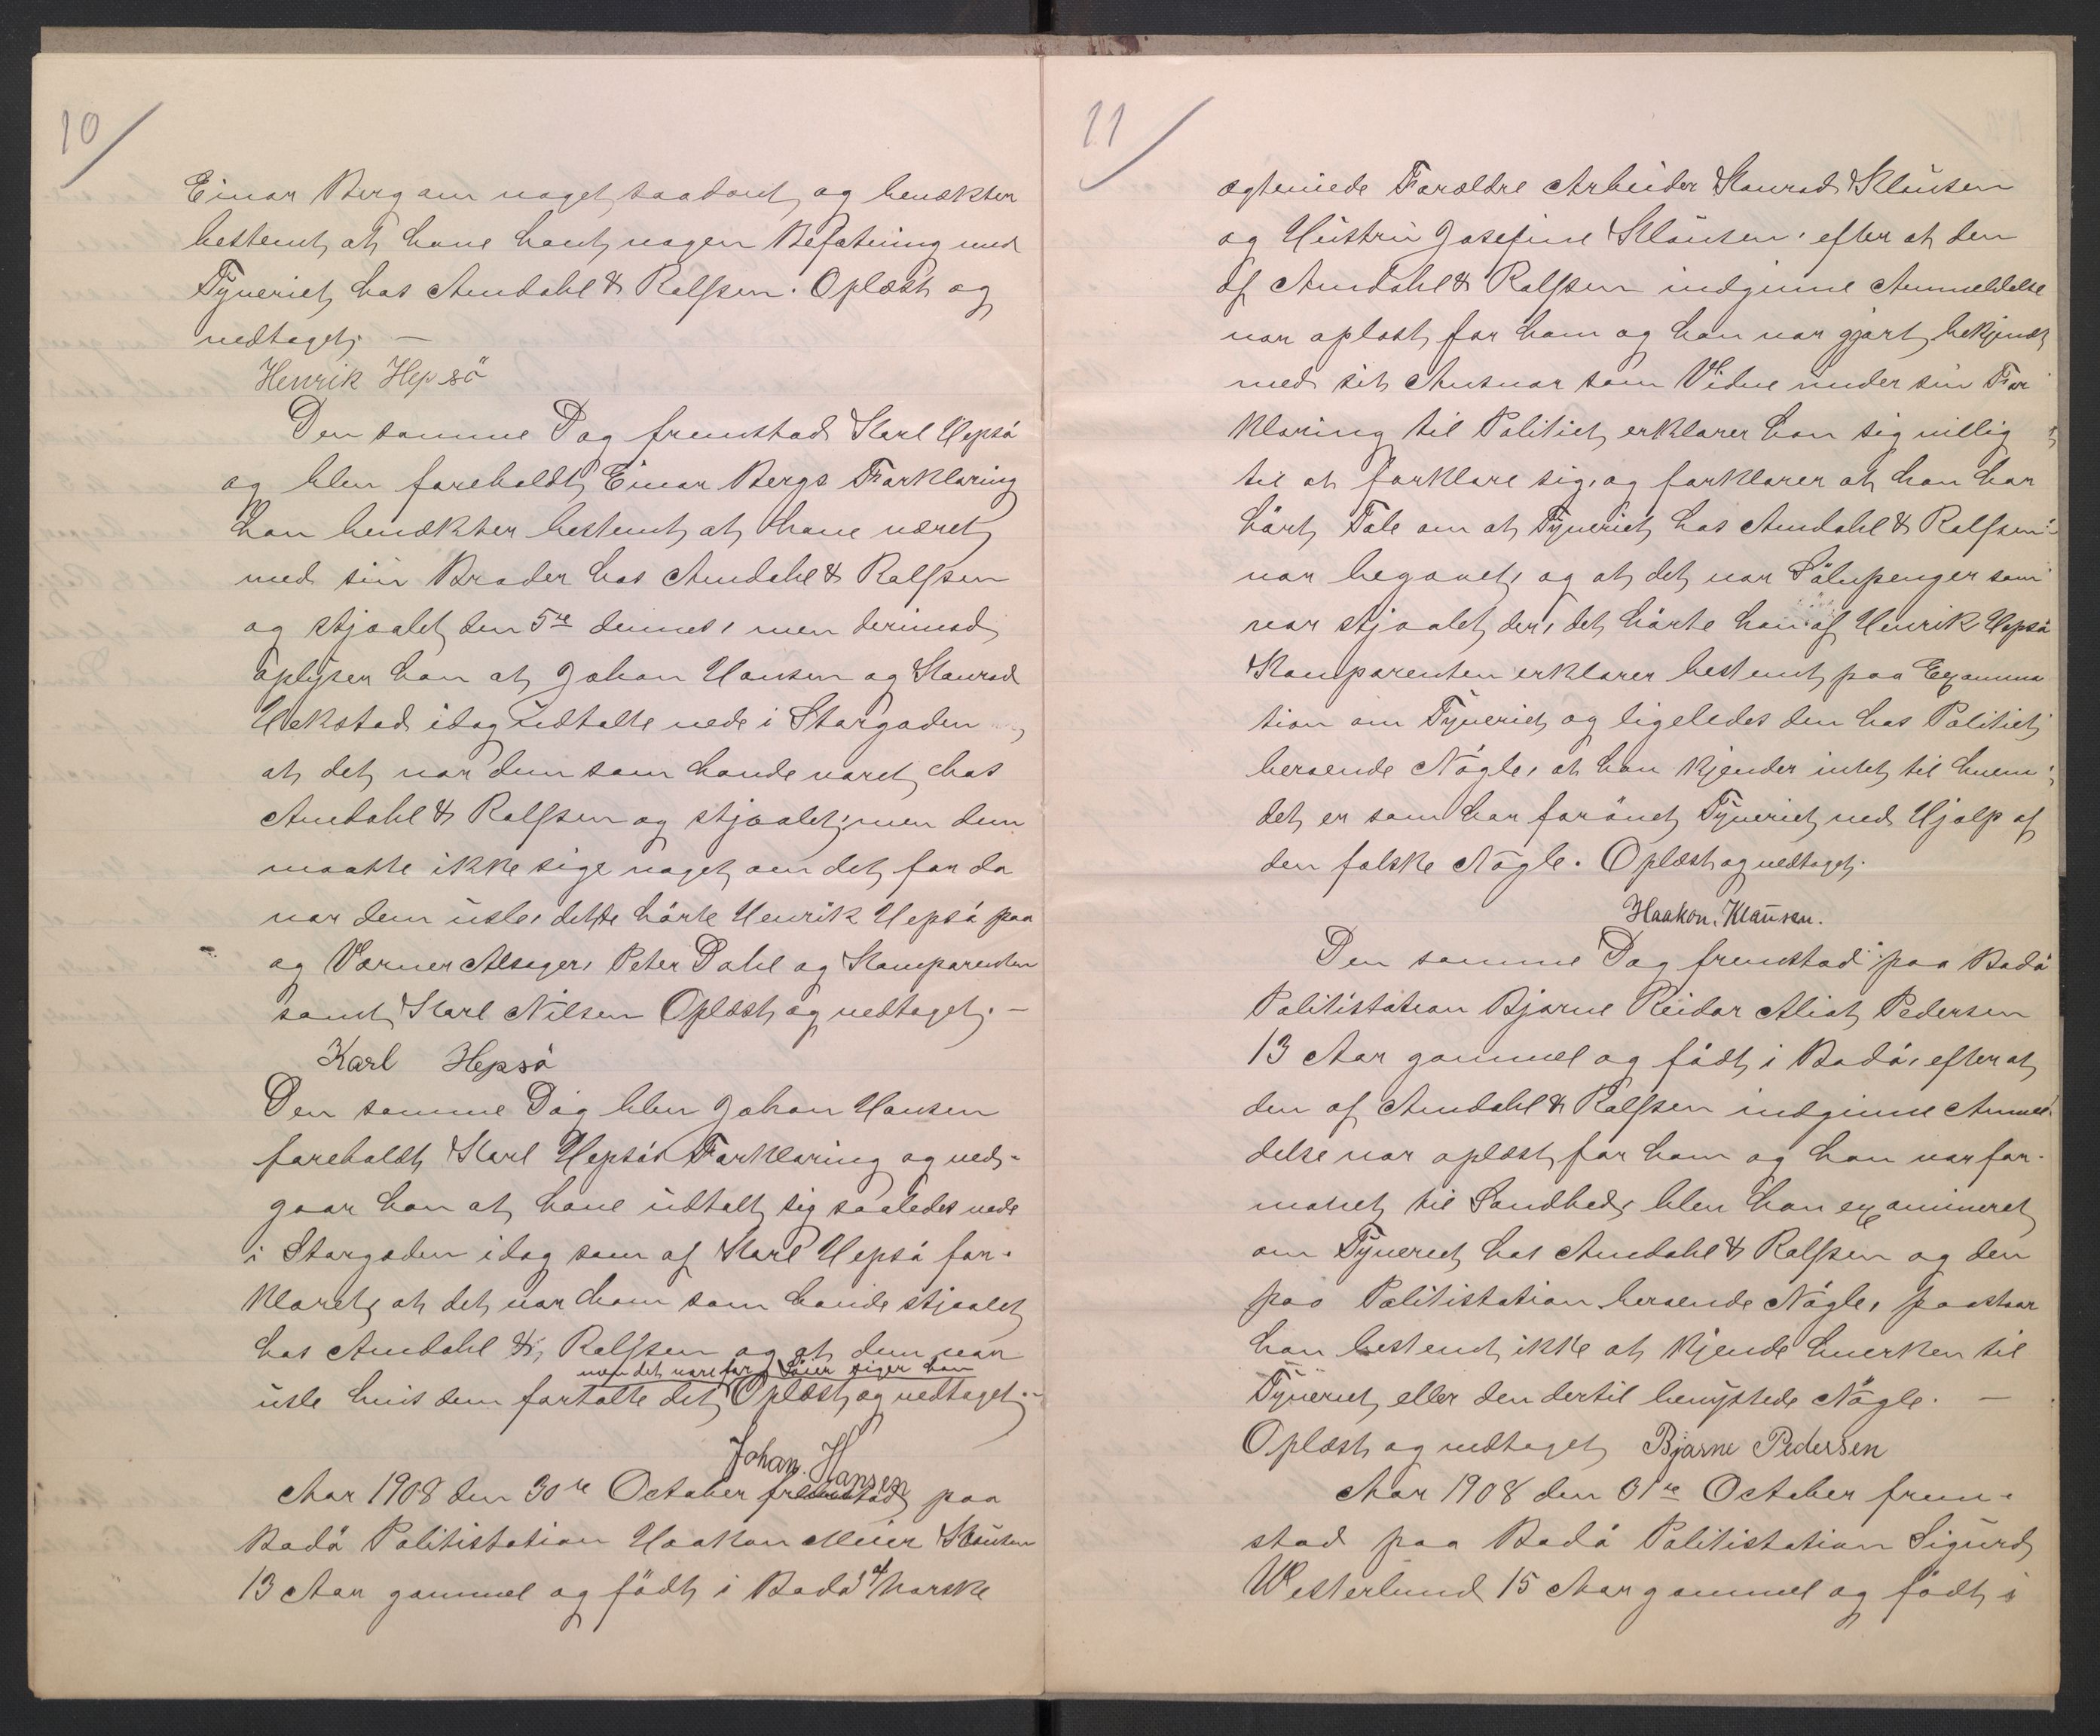 10/
Einar Berg om noget saadant, og benækter
bestemt at have havt nogen Befatning med
Tyveriet hos Amdahl & Rolfsen. Oplæst og
vedtaget. —
Henrik Hepsö
Den samme Dag fremstod Karl Hepsö
og blev foreholdt Einar Bergs Forklaring
han benækter bestemt at have været
med sin Broder hos Amdahl & Rolfsen
og stjaalet den 5te dennes, men derimod
oplyser han at Johan Hansen og Konrad
Hekstad idag udtalte nede i Storgaden
at det var dem som havde været hos
Amdahl & Rolfsen og stjaalet; men dem
maatte ikke sige noget om det for da
var dem usle, dette hörte Henrik Hepsö paa
og Varner Alsager, Peter Dahl og Komparenten
samt Karl Nilsen Oplæst og vedtaget. —
Karl Hepsö
Den samme Dag blev Johan Hansen
foreholdt Karl Hepsös Forklaring og ved-
gaar han at have udtalt sig saaledes nede
i Storgaden idag som af Karl Hepsö for-
klaret, at det var ham som havde stjaalet
hos Amdahl & Rolfsen og at dem var
men det vare for Löier siger han
usle hvis dem fortalte det Oplæst og vedtaget. —
Johan. Hansen
Aar 1908 den 30te October fremstod paa
Bodö Politistation Haakon Meier Klausen
13 Aar gammel og födt i Bodö af Norske
11/
ægteviede Forældre Arbeider Konrad Klausen
og Hustru Josefine Klausen, efter at den
af Amdahl & Rolfsen indgivne Anmeldelse
var oplæst for ham og han var gjort bekjendt
med sit Ansvar som Vidne under sin For
klaring til Politiet, erklærer han sig villig
til at forklare sig, og forklarer at han har
hört Tale om at Tyveriet hos Amdahl & Rolfsen
var begaaet, og at det var Sölvpenger som
var stjaalet der, det hörte han af Henrik Hepsö
Komparenten erklærer bestemt paa Examina
tion om Tyveriet og ligeledes den hos Politiet
beroende Nögle, at han kjender intet til hvem
det er som har forövet Tyveriet ved Hjælp af
den falske Nögle. Oplæst og vedtaget.
Haakon. Klausen.
Den samme Dag fremstod paa Bodö
Politistation Bjarne Reidar Aliot Pedersen
13 Aar gammel og födt i Bodö, efter at
den af Amdahl & Rolfsen indgivne Anmel
delse var oplæst for ham og han var for-
manet til Sandhed, blev han examineret
om Tyveriet hos Amdahl & Rolfsen og den
paa Politistation beroende Nögle, paastaar
han bestemt ikke at kjende hverken til
Tyveriet eller den dertil benyttede Nögle. —
Oplæst og vedtaget Bjarne Pedersen
Aar 1908 den 31te October frem-
stod paa Bodö Politistation Sigurd
Westerlund 15 Aar gammel og födt i